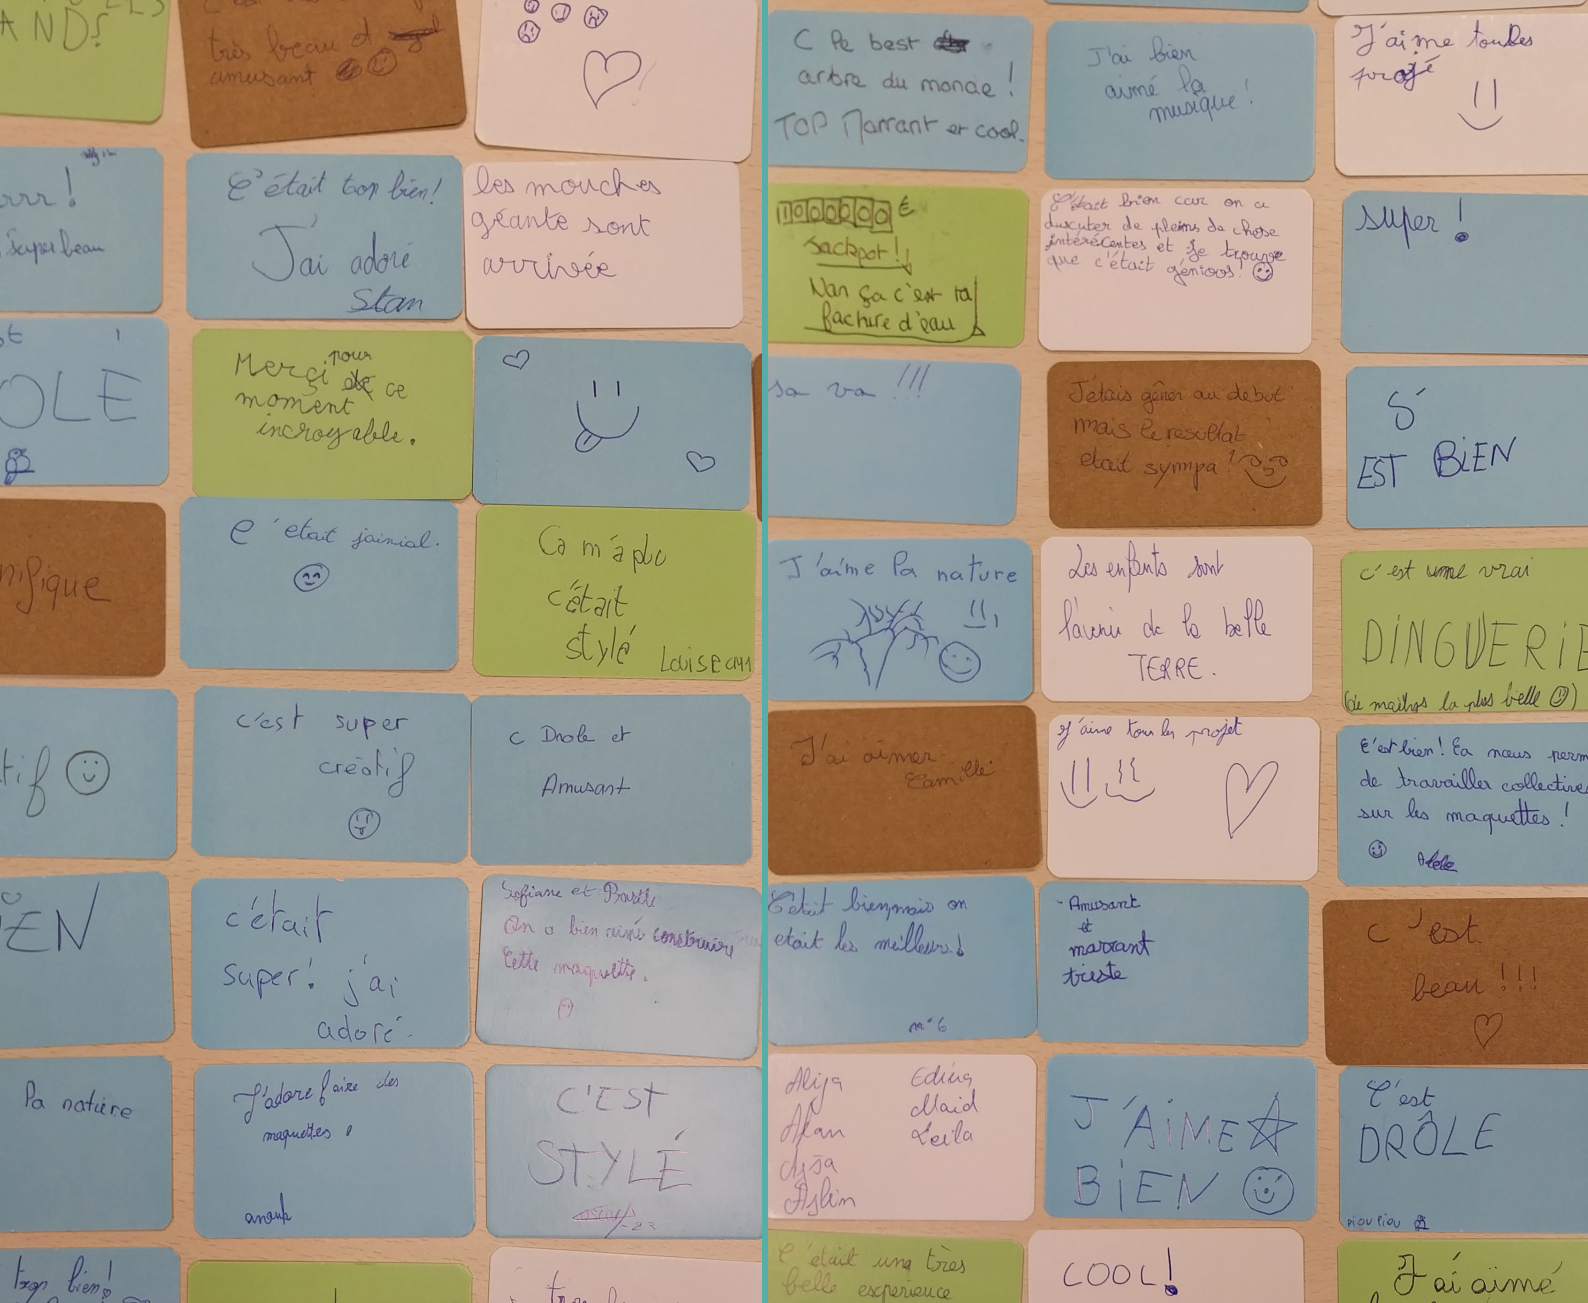 AND?
très beau et
amusant
rrr !
superbeau
C'était trop bien!
J'ai adoré
Stan
les mouches
géante sont
arrivée
OLE
Merçi pour
ce
moment
incroyable.
nifique
C'etait jainial.
Ca m'a plu
c'était
stylé
Louise CM1
tif
c'est super
créatif
C Drole et
Amusant
IEN
c'était
super! j'ai
adoré.
Sofiane et Basile
On a bien aimé construire
Cette maquette.
la nature
J'adore faire des
maquettes !
anouk
C'EST
STYLÉ
trop bien!
C le best
arbre du monde !
TOP Marrant et cool.
J'ai bien
aimé la
musique !
J'aime toutes
projé
1000000 €
Jackpot !
Nan ça c'est ta
facture d'eau
C'était bien car on a
duscuter de pleins de chose
intérécentes et je trouve
que c'était génioos!
super !
sa va !!!
J'étais gêner au debut
mais le resultat
etait sympa !
S
EST BiEN
J'aime la nature
Les enfants sont
l'avenir de la belle
TERRE.
c'est une vrai
DINGUERIE
(de maths la plus belle )
J'ai aimer
Camille
J'aime tous les projet
C'est bien! Ca nous perm
de travailler collective
sur les maquettes !
C'etait bien mais on
etait les meilleurs!
n°6
- Amusant
et
marrant
triste
C'est
beau !!!
Aliya Edina
Alan Maid
Aysa Leila
Aslin
J'AiME
BiEN
C'est
DRÔLE
piou piou
C'était une très
belle experience
COOL!
J'ai aimé